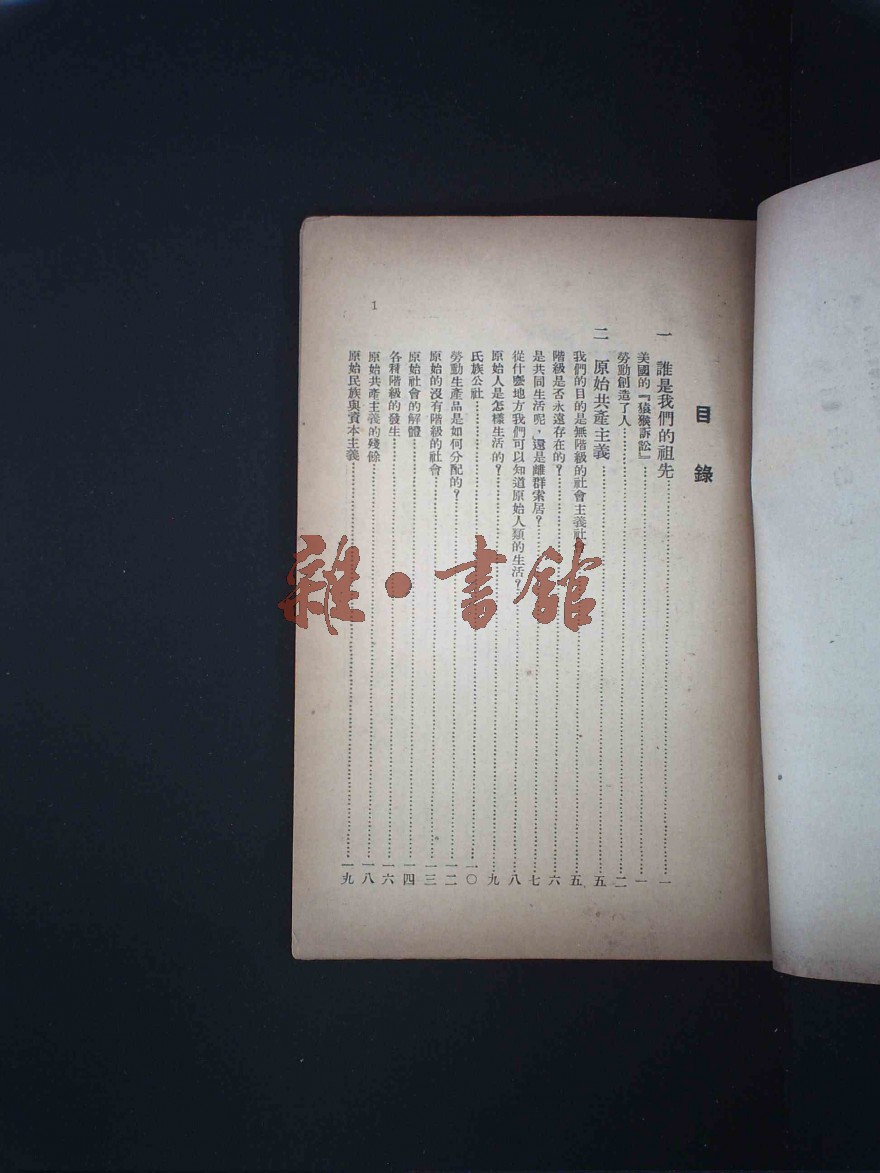 目錄
一 誰是我們的祖先……一
美國的『猿猴訴訟』……一
勞動創造了人……二
二 原始共產主義……五
我們的目的是無階級的社會主義社會……五
階級是否永遠存在的？……六
是共同生活呢，還是離群索居？……七
從什麼地方我們可以知道原始人類的生活？……八
原始人是怎樣生活的？……九
氏族公社……一〇
勞動生產品是如何分配的？……一二
原始的沒有階級的社會……一三
原始社會的解體……一四
各種階級的發生……一六
原始共產主義的殘餘……一八
原始民族與資本主義……一九
1
雜·書館